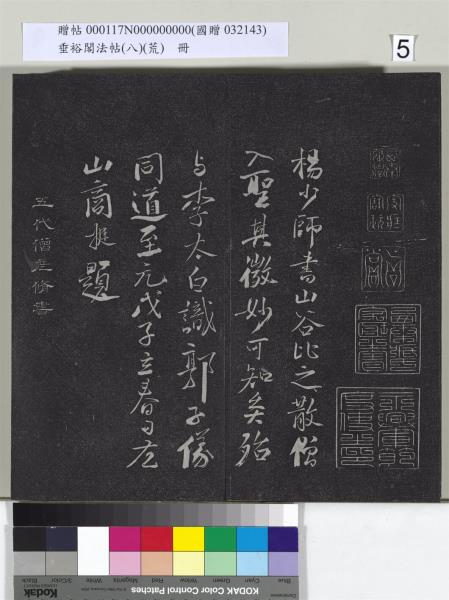 贈帖 000117N000000000(國贈 032143)
垂裕閣法帖(八)(荒) 冊
5
楊少師書山谷比之散僧
入聖其微妙可知矣殆
与李太白識郭子儀
同道至元戊子立春日左
山商挺題
五代僧彥修書
Blue
Cyan
Green
Yellow
Red
Magenta
White
3/Color
Black
Kodak
KODAK Color Control Patches